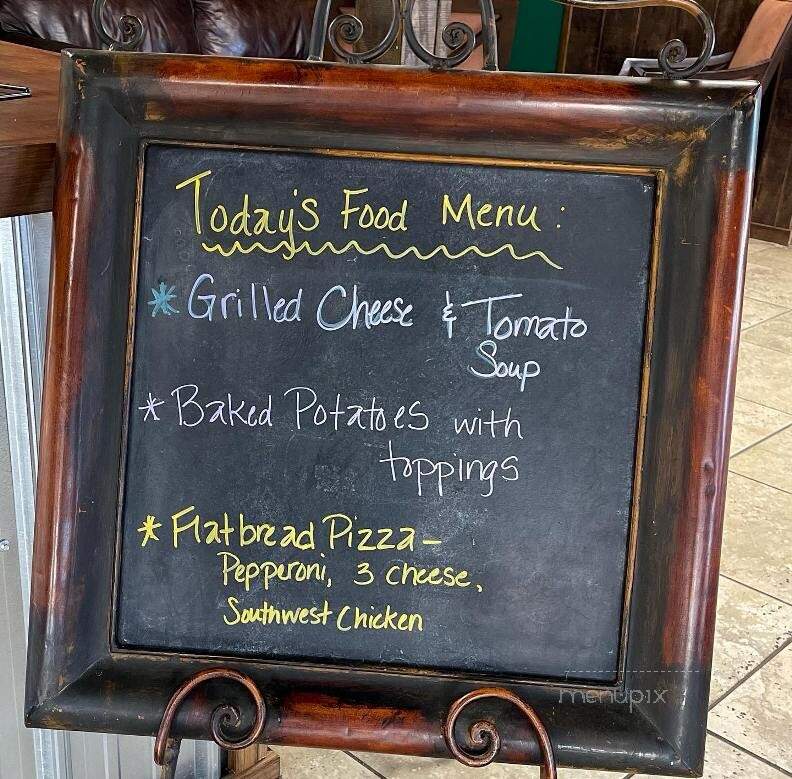 Today's Food Menu:
* Grilled Cheese & Tomato
Soup
* Baked Potatoes with
toppings
* Flatbread Pizza–
Pepperoni, 3 cheese,
Southwest Chicken
menupix